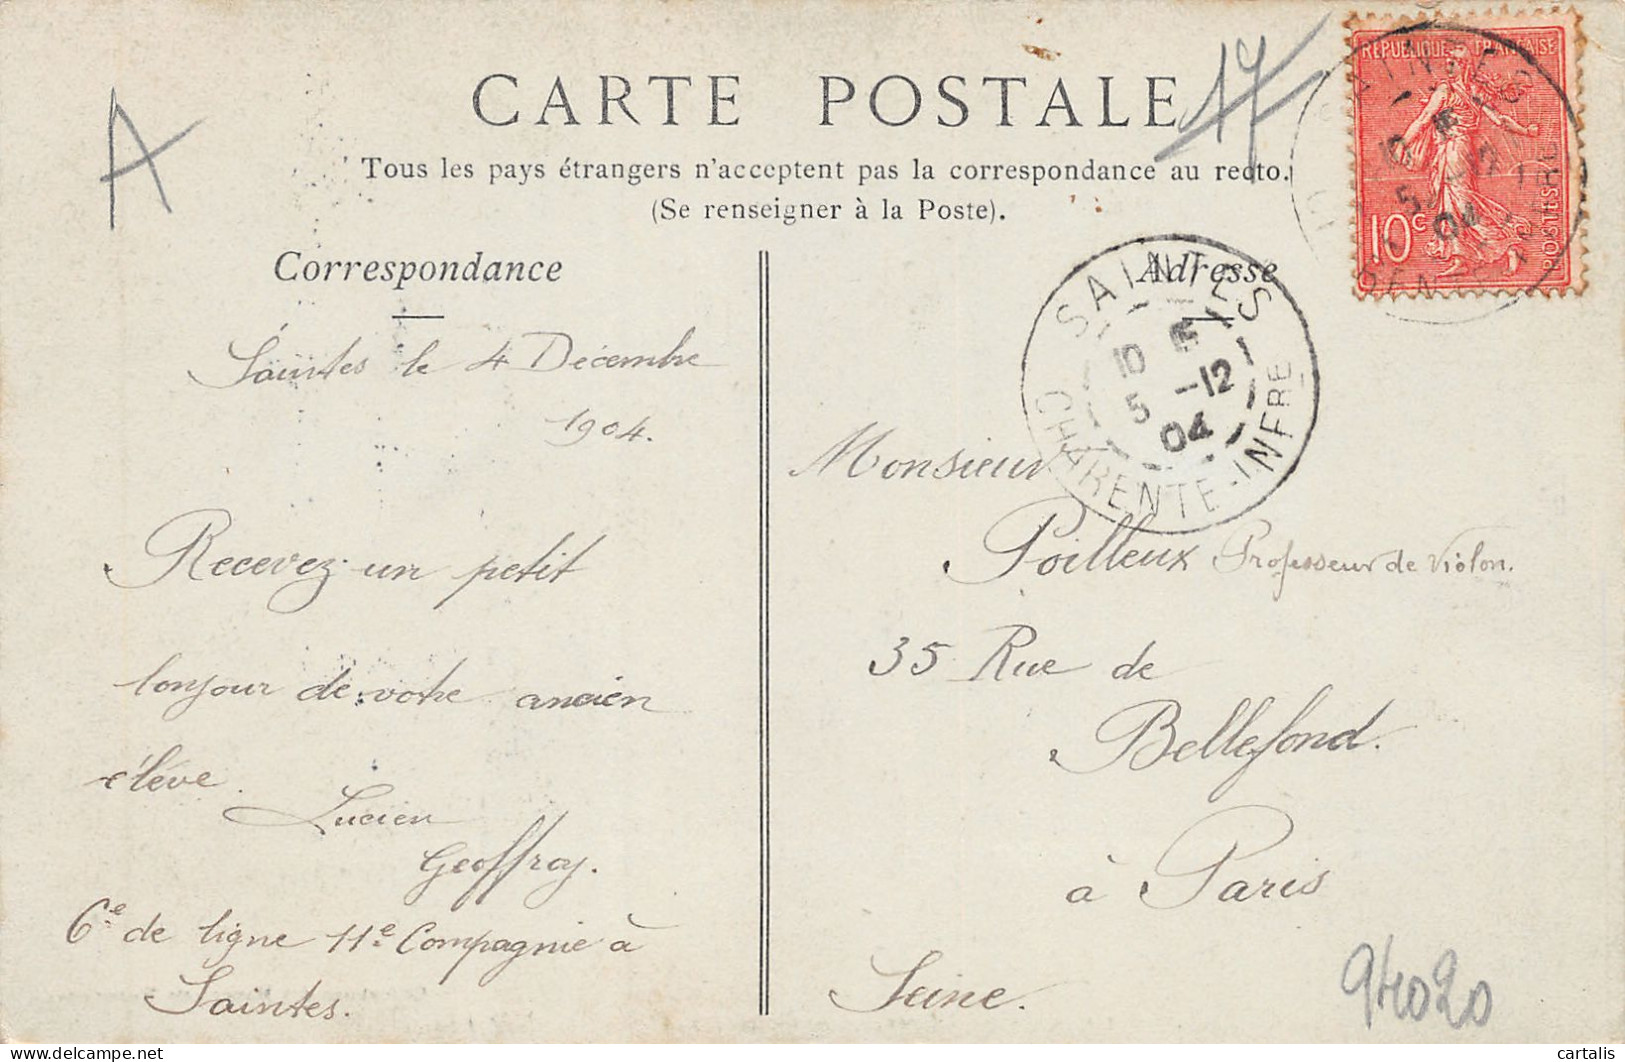 A
17
CARTE POSTALE
Tous les pays étrangers n'acceptent pas la correspondance au recto.
(Se renseigner à la Poste).
Correspondance
Saintes le 4 Décembre
1904.
Recevez un petit
bonjour de votre ancien
élève.
Lucien
Geoffroy.
6e de ligne 11e Compagnie à
Saintes.
Adresse
Monsieur
Poilleux Professeur de Violon.
35 Rue de
Bellefond.
à Paris
Seine.
REPUBLIQUE FRANÇAISE
10c
POSTES
SAINTES
10
5 -12
04
CHARENTE-INFRE
SAINTES
10
5 -12
04
CHARENTE-INFRE
94020
delcampe.net
cartalis